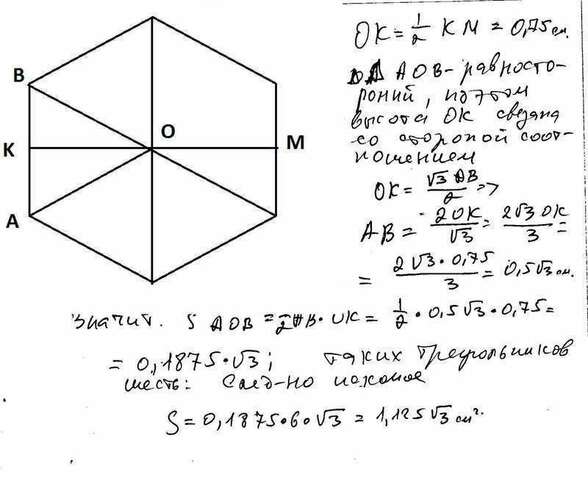 B
O
K
M
A
OK = 1/2 KM = 0,75 см.
Δ AOB - равносто-
ронний, поэтом
высота OK связана
со стороной соот-
ношением
OK = √3 AB/2 =>
AB = 2OK/√3 = 2√3 OK/3 =
= 2√3 · 0,75/3 = 0,5√3 см.
значит. S AOB = 1/2 AB · OK = 1/2 · 0,5√3 · 0,75 =
= 0,1875 · √3; таких треугольников
шесть: След-но искомое
S = 0,1875 · 6 · √3 = 1,125√3 см².